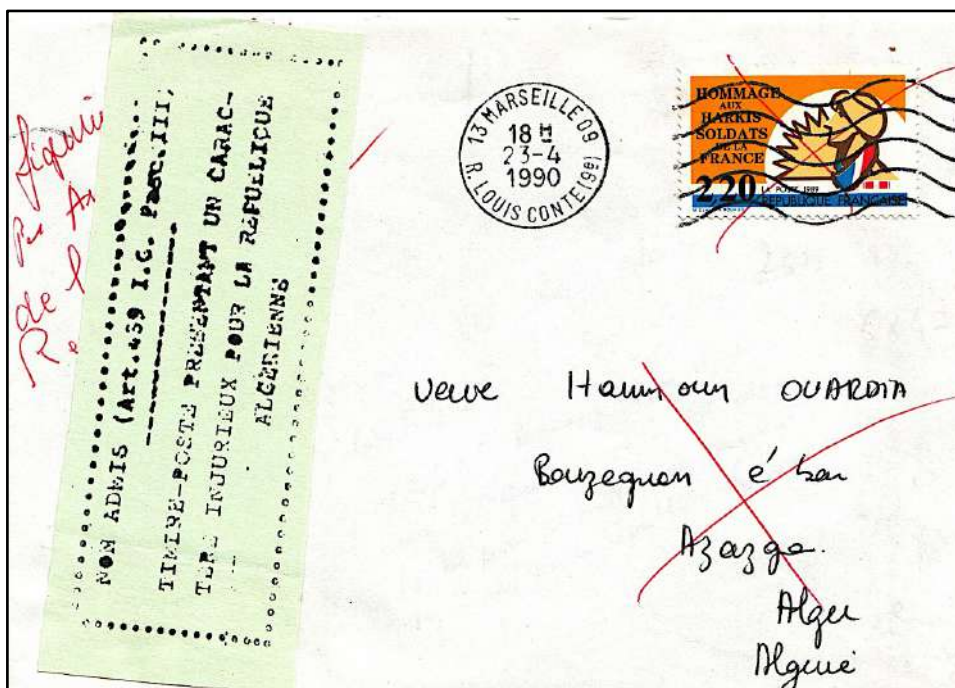 NON ADMIS (Art.459 I.G. Fasc.III,
TIMBRE-POSTE PRESENTANT UN CARAC-
TERE INJURIEUX POUR LA REPUBLIQUE
ALGERIENNE
13 MARSEILLE 09
18 H
23-4
1990
R. LOUIS CONTE (99)
HOMMAGE
AUX
HARKIS
SOLDATS
DE LA
FRANCE
2,20
LA POSTE 1989
REPUBLIQUE FRANÇAISE
de l
Veuve Hammoun OUARDIA
Azazga.
Alger
Algerie